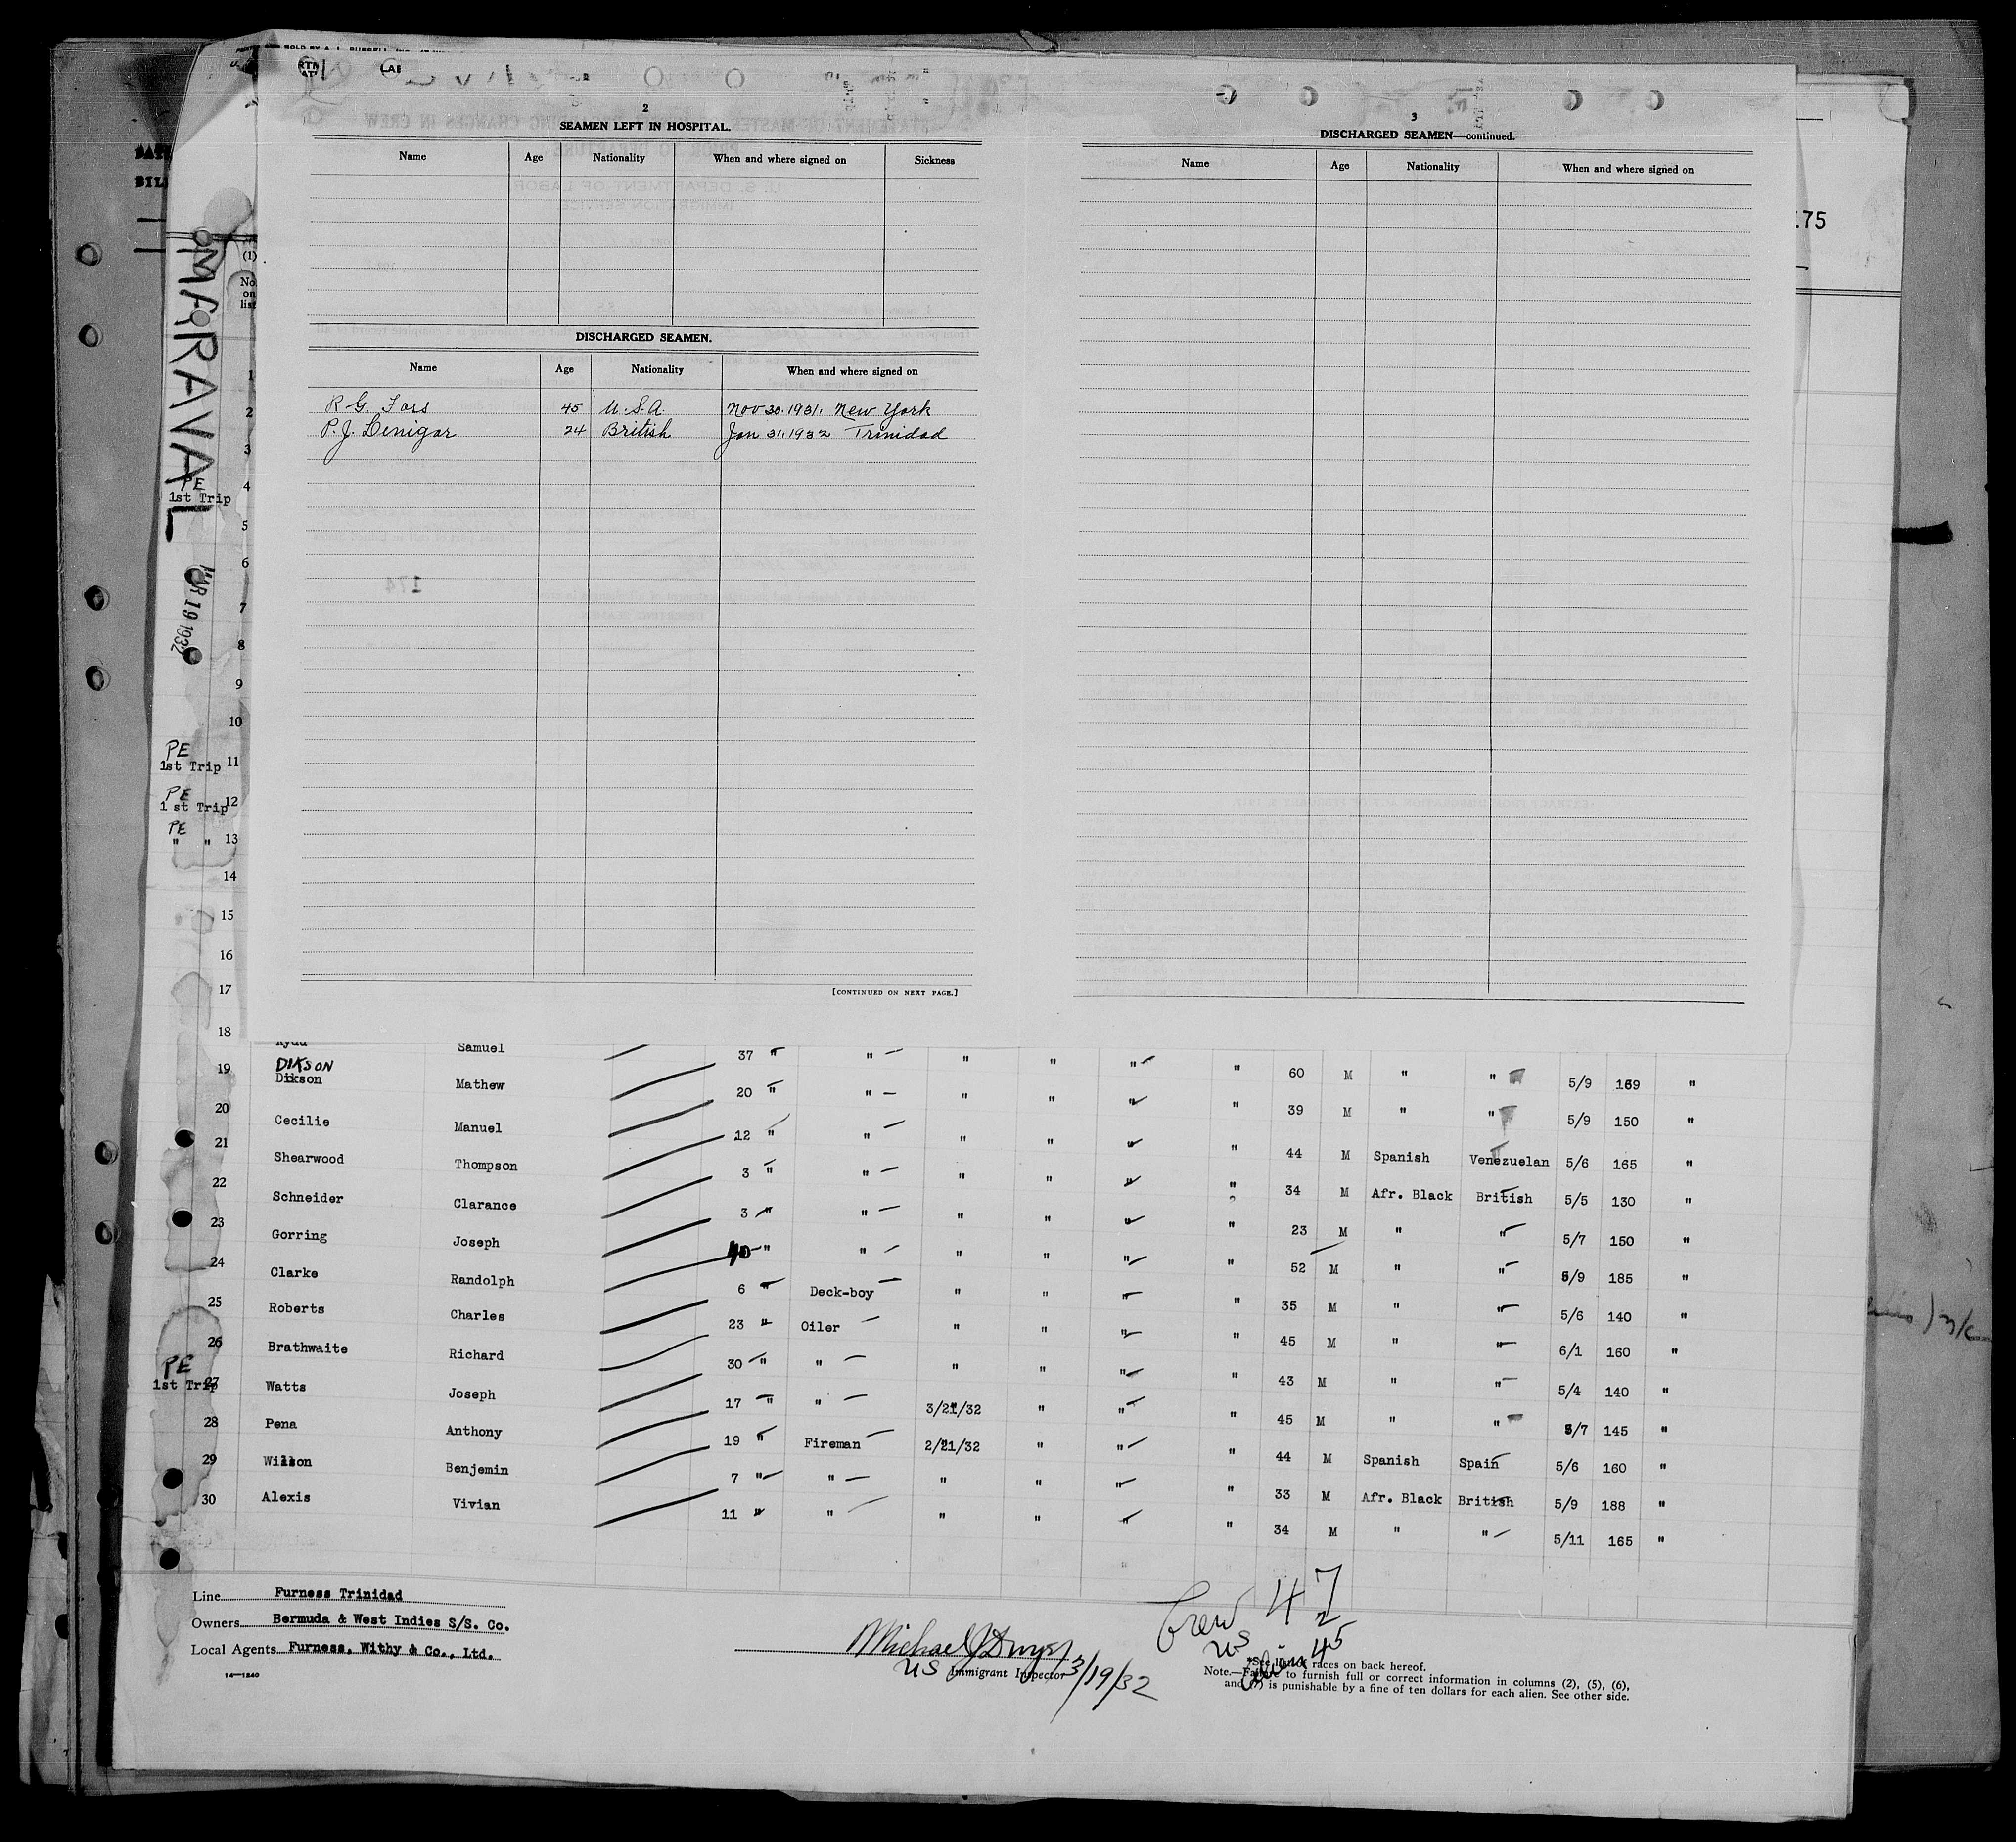 SOLD BY A. L. RUSSELL, INC.
2
SEAMEN LEFT IN HOSPITAL.
Name Age Nationality When and where signed on Sickness
DISCHARGED SEAMEN.
Name Age Nationality When and where signed on
R G. Foss 45 U.S.A. Nov 30.1931. New York
P. J. Lenigar 24 British Jan 31.1932 Trinidad
[CONTINUED ON NEXT PAGE.]
3
DISCHARGED SEAMEN—continued.
Name Age Nationality When and where signed on
175
174
MARAVAL
MAR 19 1932
(1)
No. on list
1
2
3
PE
1st Trip 4
5
6
7
8
9
10
PE
1st Trip 11
PE
1 st Trip 12
PE
" " 13
14
15
16
17
18
Samuel 37 " " " " " " 60 M " " 5/9 169 "
DIKSON
19 Dikson Mathew 20 " " " " " " 39 M " " 5/9 150 "
20 Cecilie Manuel 12 " " " " " " 44 M Spanish Venezuelan 5/6 165 "
21 Shearwood Thompson 3 " " " " " " 34 M Afr. Black British 5/5 130 "
22 Schneider Clarance 3 " " " " " " 23 M " " 5/7 150 "
23 Gorring Joseph 40 " " " " " " 52 M " " 5/9 185 "
24 Clarke Randolph 6 " Deck-boy " " " " 35 M " " 5/6 140 "
25 Roberts Charles 23 " Oiler " " " " 45 M " " 6/1 160 "
26 Brathwaite Richard 30 " " " " " " 43 M " " 5/4 140 "
PE
1st Trip 27 Watts Joseph 17 " " 3/21/32 " " " 45 M " " 5/7 145 "
28 Pena Anthony 19 " Fireman 2/21/32 " " " 44 M Spanish Spain 5/6 160 "
29 Wilson Benjemin 7 " " " " " " 33 M Afr. Black British 5/9 188 "
30 Alexis Vivian 11 " " " " " " 34 M " " 5/11 165 "
Line Furness Trinidad
Owners Bermuda & West Indies S/S. Co.
Local Agents Furness, Withy & Co., Ltd.
14—1240
Michael J
US Immigrant Inspector 3/19/32
Crew 47
US 2
Aliens 45
*See list of races on back hereof.
Note.—Failure to furnish full or correct information in columns (2), (5), (6),
and (7) is punishable by a fine of ten dollars for each alien. See other side.